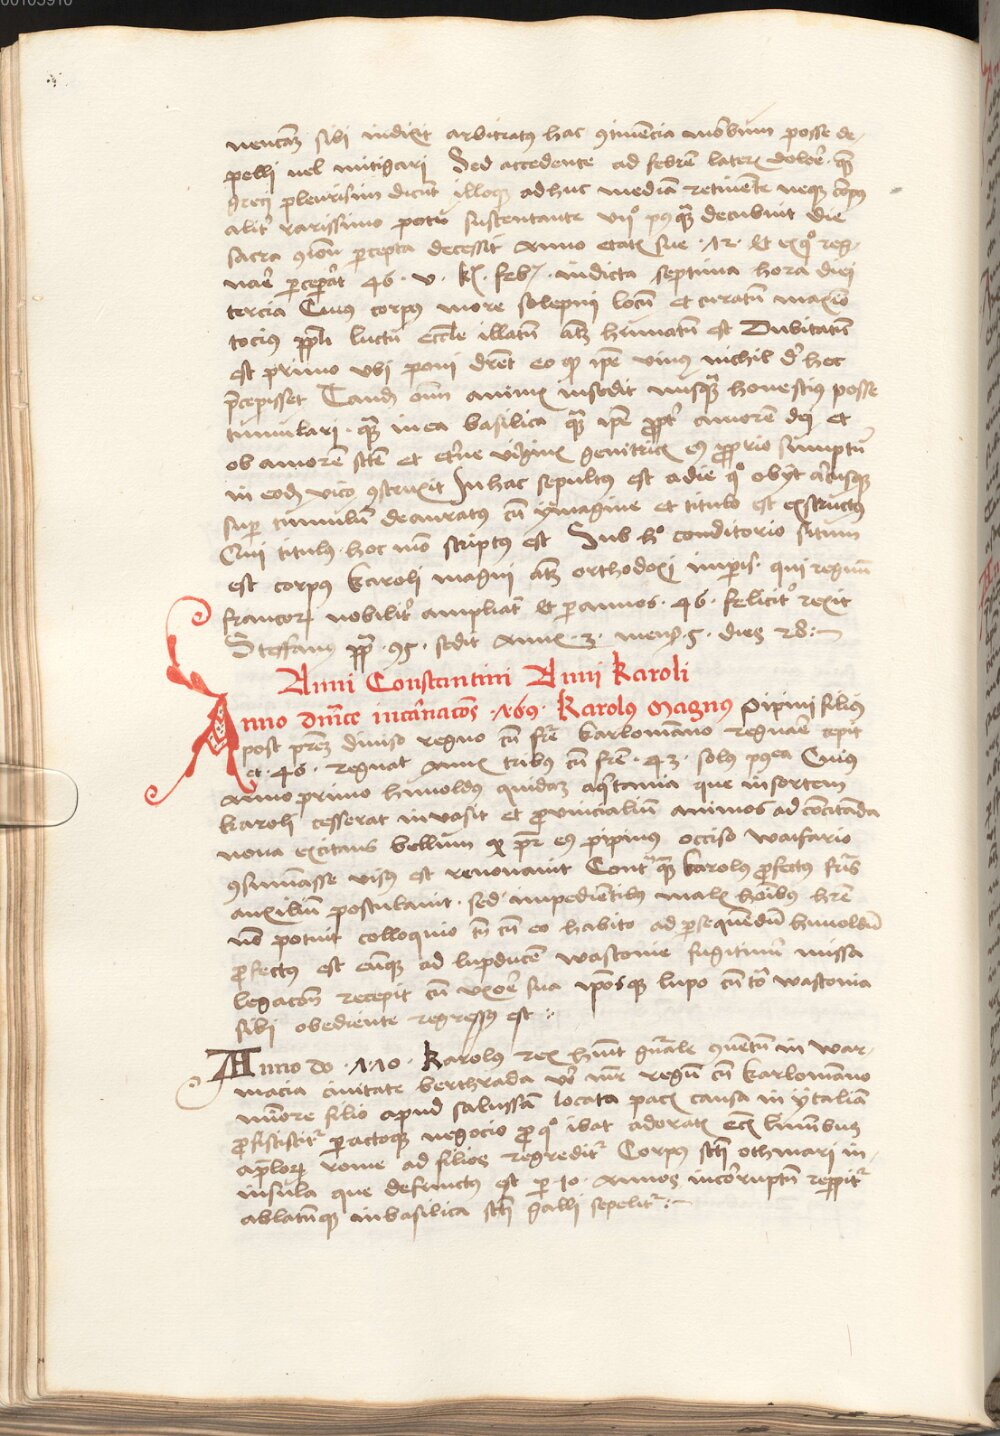 nenciam sibi indixit arbitratus hac continencia morbum posse de-
pelli vel mitigari Sed accedente ad febrē lateris dolore · quē
greci pleurisim dicūt illoque adhuc mediā retinente neque corpus
aliter rarissimo potu sustentante vii° postquā decubuit die
sacra cōione percepta decessit Anno etatis sue · 72 · Et ex quo reg-
nare ceperat 46 · v · kl · febr · indictōe septima hora diei
tercia Cuius corpus more solepni lotū et curatū maximo
tocius ppli luctu ecclie illatū atque humatū est Dubitatū
est primo vbi poni deret eo quod ipse viuus nichil de hoc
precepisset Tandē omnium animis insedit nusquā honestius posse
tumulari · quā in ea basilica quā ipse propter amorē dei et
ob amorē sctē et eterne virginis genitricis eius proprio sumptu
in eodē vico cōstruxit In hac sepultus est eadie qua obijt arcusque
super tumulū deauratus cū ymagine et titulo est exstructus
Qui titulus hoc modo scriptus est Sub hoc conditorio situm
est corpus karoli magni atque orthodoxi imperatoris qui regnū
francorum nobiliter ampliauit Et per annos · 46 · feliciter rexit
Steffanus papa · 95 · sedit Annis · 3 · menses · 5 · dies 28 :-
Anni Constantini Anni Karoli
Anno dnice incarnacōis · 769 · Karolus Magnus Pipini filius
post patrem diuiso regno cū fratre karlomanno regnare cepit
et · 46 · regnat Annis tribus cū fratre · 43 · solus postea Cuius
Anno primo hunoldus quidam aquitania que in sortem
karoli cesserat inuasit et prouincialium animos ad concitanda
noua excitans bellum quod pater eius pipinus occiso waifario
cōsummasse visus est renouauit Contra quem karolus profectus fratris
auxiliū postulauit · sed impedientibus malis hominibus habere
non potuit colloquio tamen cū eo habito ad persequendū hunoldū
profectus est eumque ad lupducem wasconie fugitiuū missa
legacōe recepit cū vxore sua ipsoque lupo cū tota wasconia
sibi obediente regressus est :
Anno do · 770 · Karolus rex habuit generale conuentū in war-
macia ciuitate berthrada vero mater regū cū karlomanno
minore filio apud salussam locuta pacis causa in ytaliā
proficiscitur peractoque negocio pro quo ibat adoratis eciā liminibus
aplorum rome ad filios regreditur Corpus scti othmari in
insula que defunctus est per 10 · Annos incorruptū repperitur
ablatūque in basilica scti galli sepelitur :-